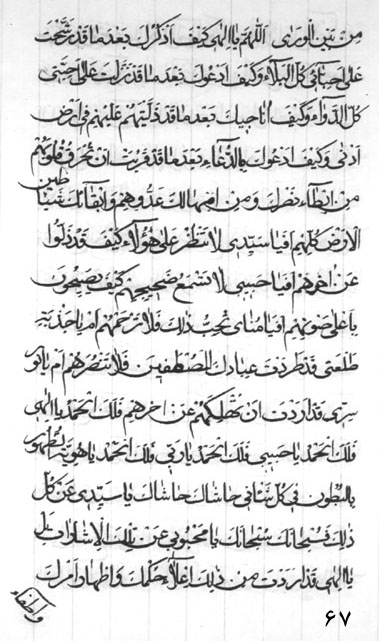 من بين الورى اللهم يا الهى كيف اذكرك بعد ما قد رشّحت
على احبائى كل البلاء وكيف ادعوك بعد ما قد نزلت على احبتى
كل الدواء وكيف اناجيك بعد ما قد ذليتهم عليهم فى ارض
ادنى وكيف ادعوك بالدعاء بعد ما قد قربت ان تحرق قلوبهم
من ابطاء نصرك ومن امهالك عدوهم وابقائك شياطين
الارض كلهم افيا سيدى لا تنظر على هؤلاء كيف قد ذلوا
عن اخرهم افيا حبيبى لا تسمع ضجيجهم كيف يصيحون
باعلى صوتهم افيا مناى تحب ذلك فلا ترحمهم ام يا جذبة
طلعتى قد طردت عبادك المصطفين فلا تنصرهم ام يا نور
سرى قد اردت ان تهلكهم عن اخرهم فلك الحمد يا الهى
فلك الحمد يا حبيبى فلك الحمد يا ربى فلك الحمد يا هوية الظهور
بالبطون فى كل شأنى حاشاك حاشاك يا سيدى عن كل
ذلك فسبحانك سبحانك يا محبوبى عن تلك الاشارات بل
يا الهى قد اردت من ذلك اعلاء حكمك واظهار امرك
۶۷